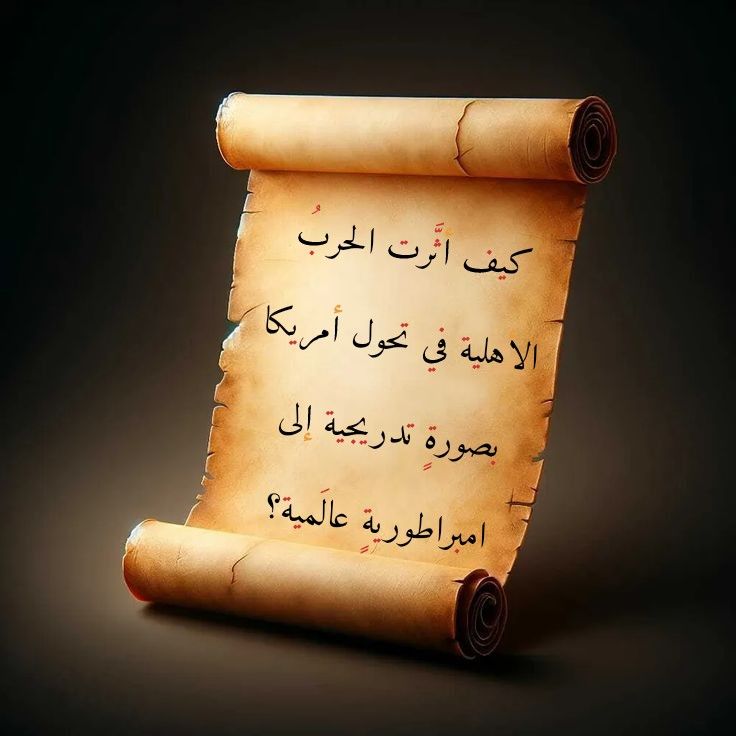 كيف أثَّرت الحربُ
الاهلية في تحول أمريكا
بصورةٍ تدريجية إلى
امبراطوريةٍ عالَمية؟